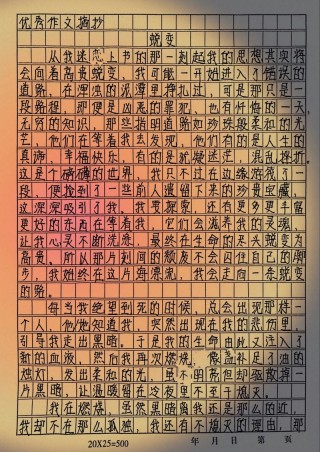 优秀作文摘抄
蜕变
从我迷恋上书的那一刻起我的思想其实将
会向着高贵蜕变，我可能一开始进入了错误的
道路，在浑浊的泥潭里挣扎过，可是那只是一
段路程，那便是凶恶的罪犯，也有忏悔的一天，
无穷的知识，那些指明道路如珍珠段柔和的光
芒，他们在等着我去发现，他们有的是人生的
真谛，幸福快乐，有的是就疑迷茫，混乱挣扰。
这是个磅礴的世界，我只不过在边缘游荡了一
段，便捡到了一些前人遗留下来的珍贵宝藏，
这深深吸引了我，我要探索，还有更多更丰富
更好的东西在等着我，它们会滋养我的灵魂，
让我心灵不断洗涤，最终在生命的尽头蜕变为
高贵。所以那片刻间的颓废不会囚住自己的脚
步，我始终在这片海漂流，我会走向一条蜕变
的路。
每当我绝望到死的时候，总会出现那样一
个人，他知道我，突然出现在我的悲伤里，
引导我走出黑暗。于是我的生命由此又注入了
新的血液，然后我再次燃烧，像盏补足了油的
烛灯，发出柔和的光，虽不明亮但却驱散掉一
片黑暗，让温暖留在冷夜里不至于熄灭。
我在燃烧，虽然黑暗离我还是那么的近，
我却不在那么孤独，我还有不熄灭的理由，那
20X25=500 年 月 日 第 页